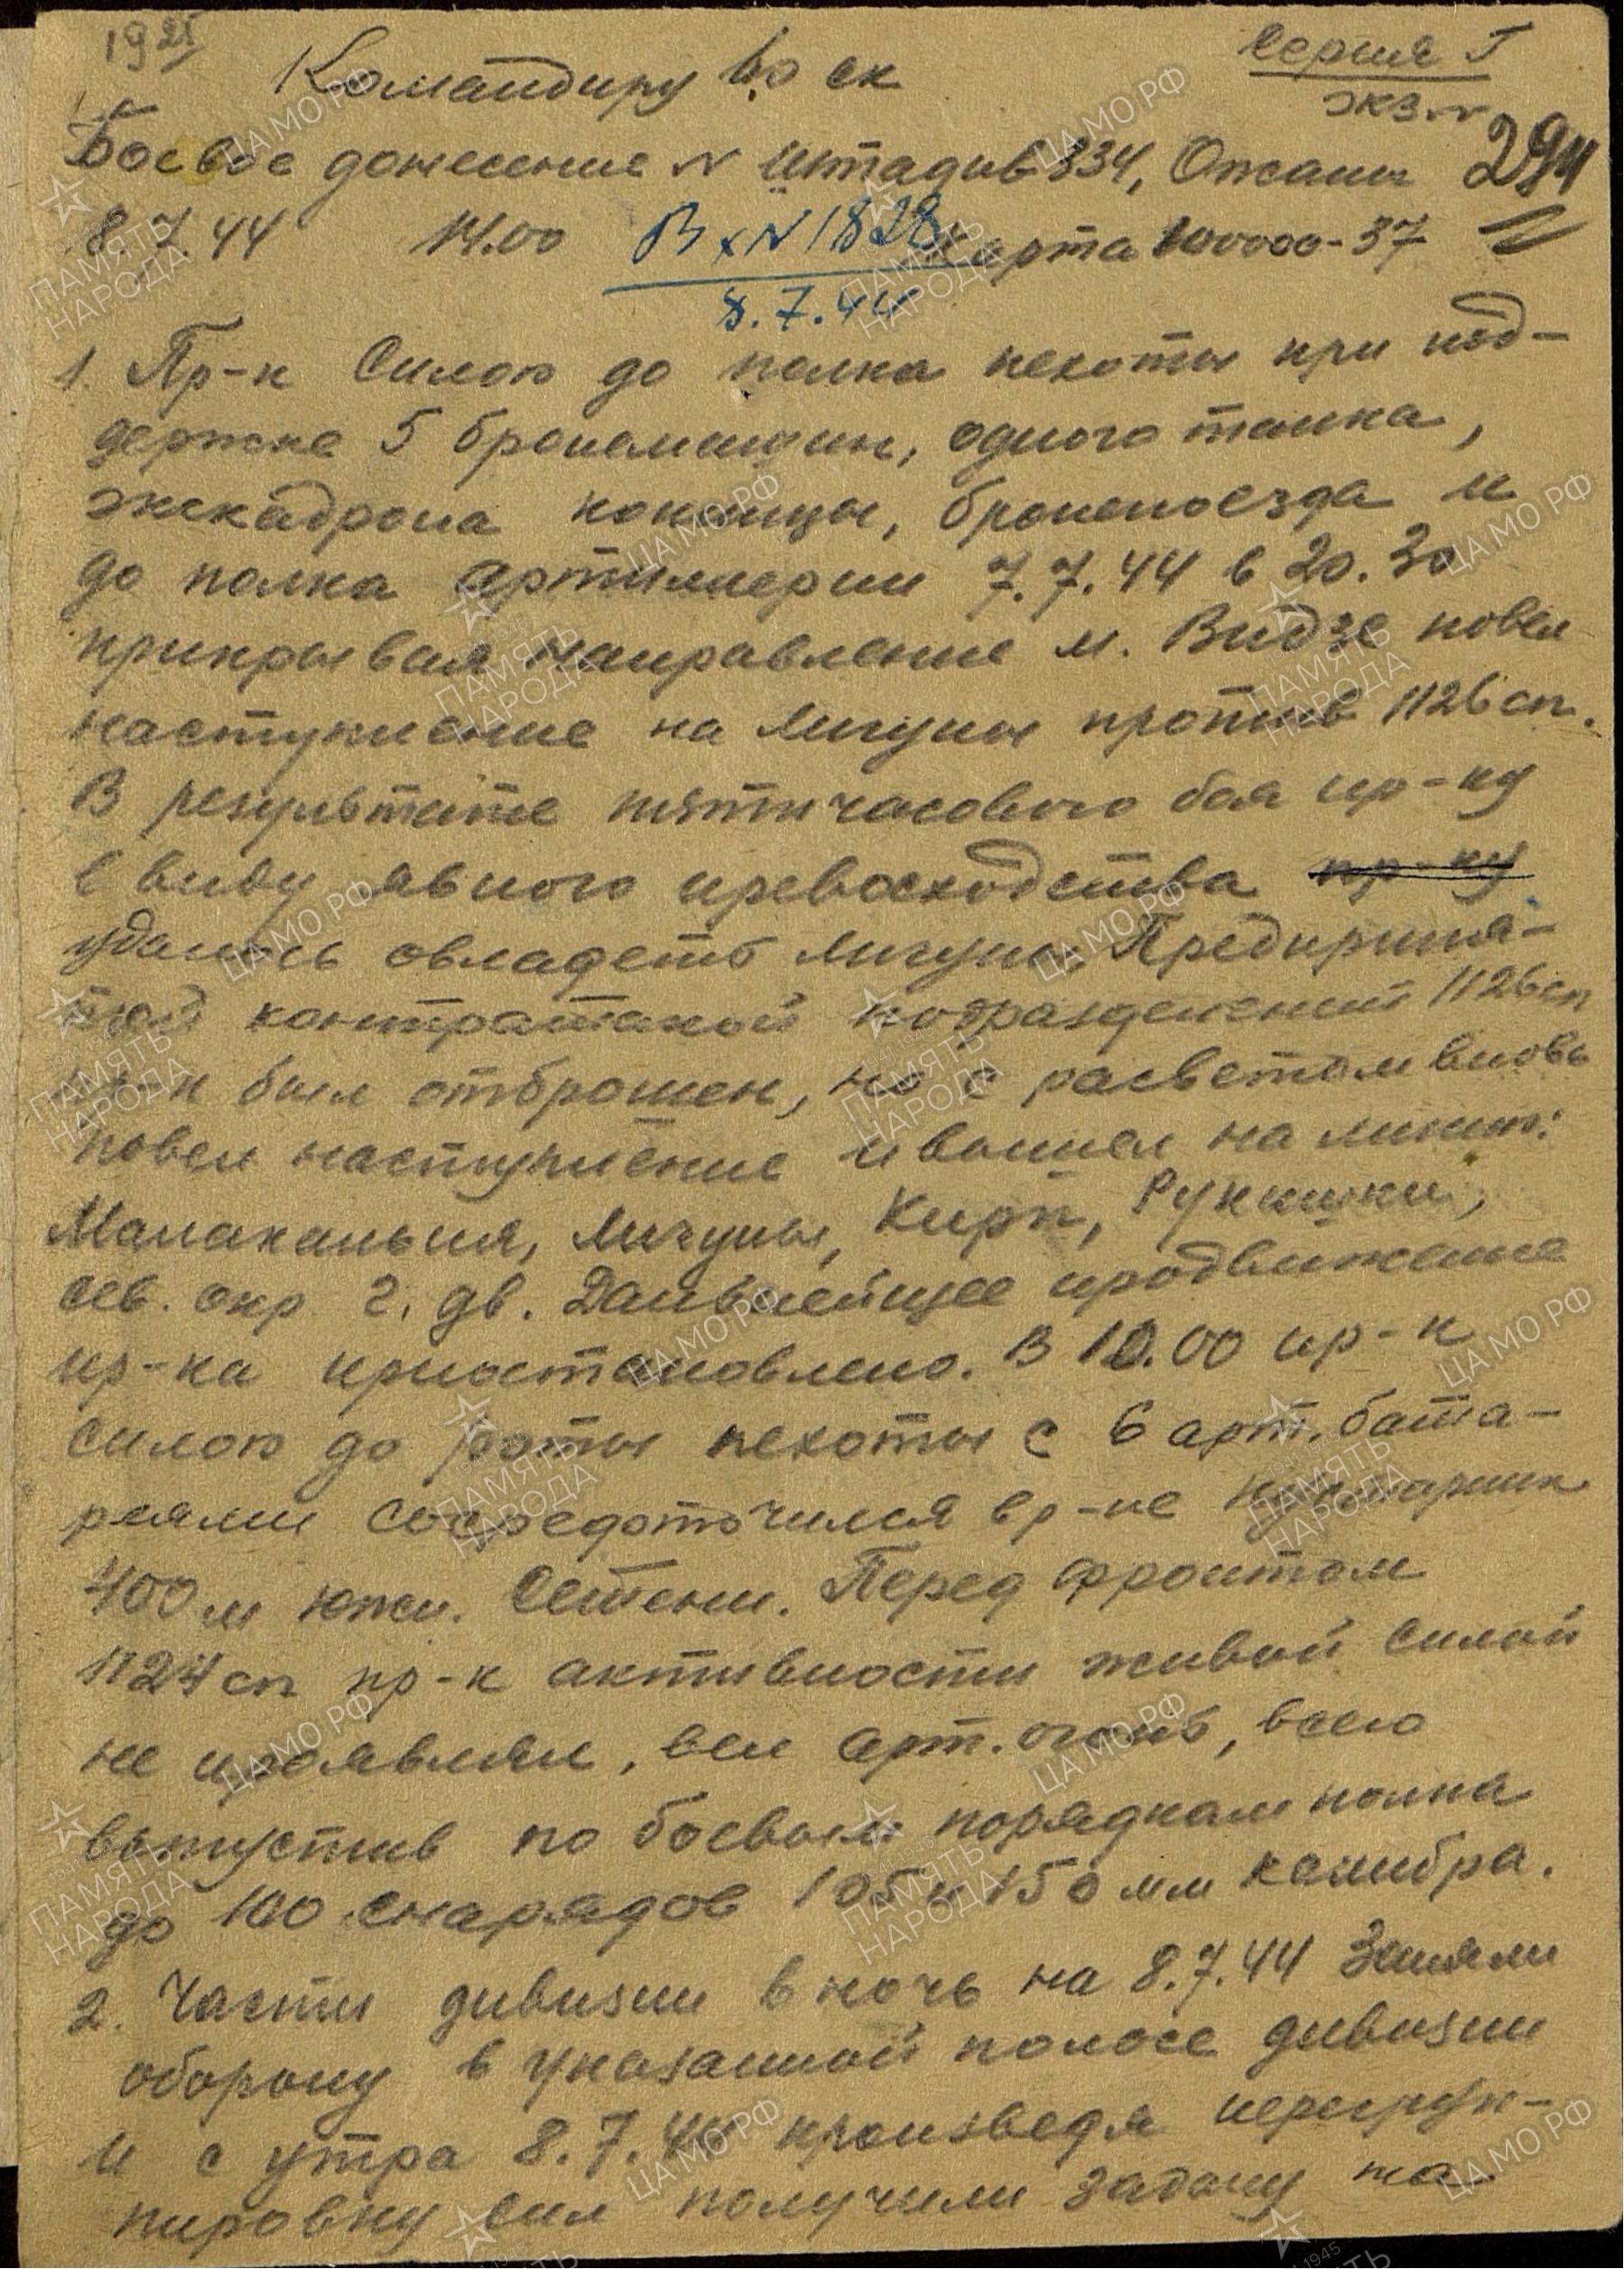 1925
Серия Г
Командиру 60 ск
экз. №
Боевое донесение № Штадив 334, Ожаны 294
8.7.44 14.00 Вх№1828 Карта 100000-37
8.7.44
1. Пр-к силою до полка пехоты при под-
держке 5 бронемашин, одного танка,
эскадрона конницы, бронепоезда и
до полка артиллерии 7.7.44 в 20.30
прикрывая направление м. Видзе повел
наступление на Мичуны против 1126 сп.
В результате пятичасового боя пр-ку
в виду явного превосходства пр-ку
удалось овладеть Мичуны. Предприня-
той контратакой подразделений 1126 сп
пр-к был отброшен, но с расветом вновь
повел наступление и вышел на линию:
Малаканьия, Мичуны, Кирп, Рункишки,
сев. окр. г. дв. Дальнейшее продвижение
пр-ка приостановлено. В 10.00 пр-к
силою до роты пехоты с 6 арт. бата-
реями сосредоточился в р-не кустарник
400 м южн. Сетени. Перед фронтом
1124 сп пр-к активности живой силой
не проявлял, вел арт. огонь, всего
выпустив по боевым порядкам полка
до 100 снарядов 105 и 150 мм калибра.
2. Части дивизии в ночь на 8.7.44 заняли
оборону в указанной полосе дивизии
и с утра 8.7.44 произведя перегруп-
пировку сил получили задачу на